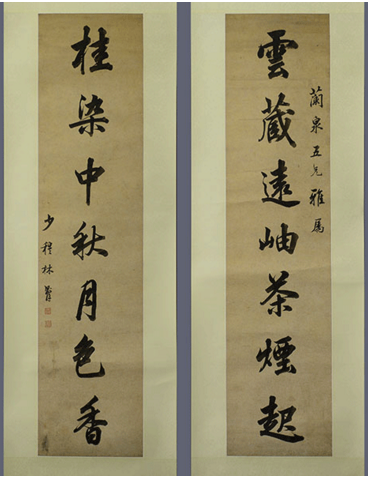 雲藏遠岫茶煙起
蘭泉五兄雅屬
桂染中秋月色香
少穆林